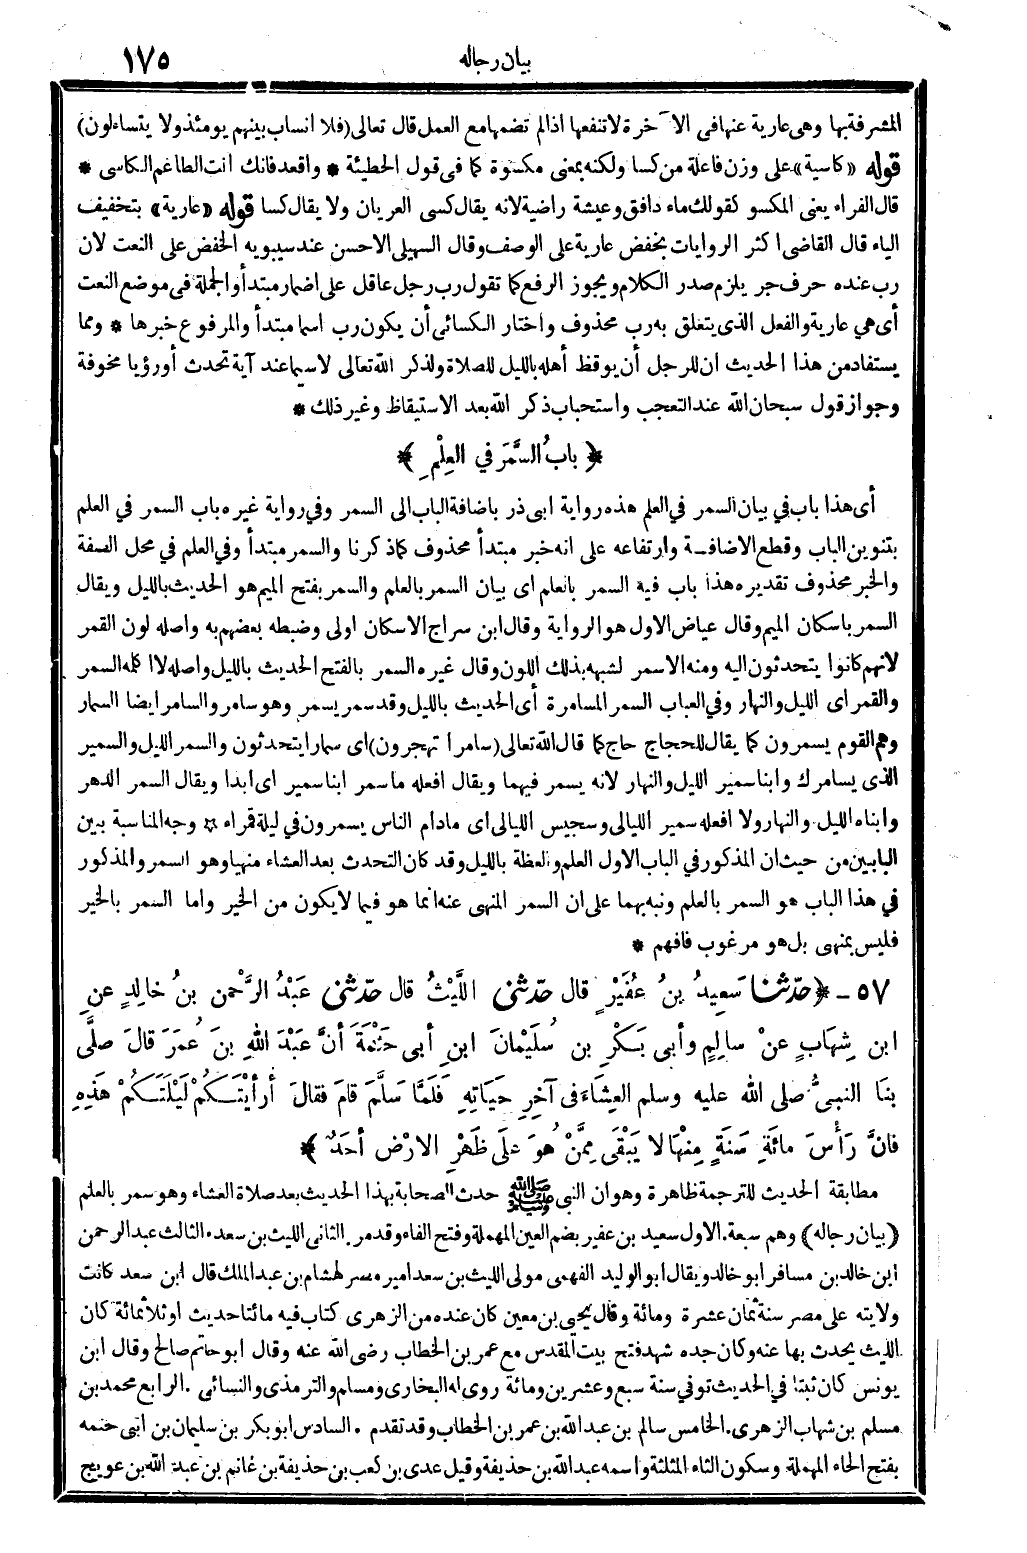 بيان رجاله
١٧٥
المشرفة بها وهى عارية عنها فى الآخرة لا تنفعها اذا لم تضمها مع العمل قال تعالى (فلا انساب بينهم يومئذ ولا يتساءلون)
قوله «كاسية» على وزن فاعلة من كسا ولكنه بمعنى مكسوة كما فى قول الحطيئة * واقعد فانك انت الطاعم الكاسى *
قال الفراء يعنى المكسو كقولك ماء دافق وعيشة راضية لانه يقال كسى العريان ولا يقال كسا قوله «عارية» بتخفيف
الياء قال القاضى اكثر الروايات بخفض عارية على الوصف وقال السهيلى الاحسن عند سيبويه الخفض على النعت لان
رب عنده حرف جر يلزم صدر الكلام ويجوز الرفع كما تقول رب رجل عاقل على اضمار مبتدأ والجملة فى موضع النعت
أى هي عارية والفعل الذى يتعلق به رب محذوف واختار الكسائى أن يكون رب اسما مبتدأ والمرفوع خبرها * ومما
يستفاد من هذا الحديث ان للرجل أن يوقظ أهله بالليل للصلاة ولذكر الله تعالى لا سيما عند آية تحدث أو رؤيا مخوفة
وجواز قول سبحان الله عند التعجب واستحباب ذكر الله بعد الاستيقاظ وغير ذلك *
﴿ بابُ السَّمَرِ في العِلْمِ ﴾
أى هذا باب في بيان السمر في العلم هذه رواية ابى ذر باضافة الباب الى السمر وفي رواية غيره باب السمر في العلم
بتنوين الباب وقطع الاضافة وارتفاعه على انه خبر مبتدأ محذوف كما ذكرنا والسمر مبتدأ وفي العلم في محل الصفة
والخبر محذوف تقديره هذا باب فيه السمر بالعلم اى بيان السمر بالعلم والسمر بفتح الميم هو الحديث بالليل ويقال
السمر باسكان الميم وقال عياض الاول هو الرواية وقال ابن سراج الاسكان اولى وضبطه بعضهم به واصله لون القمر
لانهم كانوا يتحدثون اليه ومنه الاسمر لشبهه بذلك اللون وقال غيره السمر بالفتح الحديث بالليل واصله لا اكلمه السمر
والقمر اى الليل والنهار وفي العباب السمر المسامرة أى الحديث بالليل وقد سمر يسمر وهو سامر والسامر ايضا السمار
وهم القوم يسمرون كما يقال للحجاج حاج كما قال الله تعالى (سامرا تهجرون) اى سمارا يتحدثون والسمر الليل والسمير
الذى يسامرك وابنا سمير الليل والنهار لانه يسمر فيهما ويقال افعله ما سمر ابنا سمير اى ابدا ويقال السمر الدهر
وابناه الليل والنهار ولا افعله سمير الليالى وسجيس الليالى اى مادام الناس يسمرون في ليلة قمراء ☆ وجه المناسبة بين
البابين من حيث ان المذكور في الباب الاول العلم والعظة بالليل وقد كان التحدث بعد العشاء منهيا وهو السمر والمذكور
في هذا الباب هو السمر بالعلم ونبه بهما على ان السمر المنهى عنه انما هو فيما لا يكون من الخير واما السمر بالخير
فليس بمنهى بل هو مرغوب فافهم *
٥٧ - ﴿ حدّثنا سَعِيدُ بنُ عُفَيْرٍ قال حدّثنى اللَّيْثُ قال حدّثنى عَبْدُ الرَّحْمنِ بنُ خالِدٍ عنِ
ابنِ شِهَابٍ عنْ سالِمٍ وأبى بَكْرِ بنِ سُلَيْمانَ ابنِ أبى حَثْمَةَ أنَّ عَبْدَ اللهِ بنَ عُمَرَ قالَ صلَّى
بنَا النبىُّ صلى الله عليه وسلم العِشاءَ فى آخِرِ حَيَاتِهِ فَلَمَّا سَلَّمَ قامَ فقالَ أرأيْتَكُمْ لَيْلَتَكُمْ هَذِهِ
فانَّ رَأْسَ مائَةِ سَنَةٍ مِنْهَا لا يَبْقَى مِمَّنْ هُوَ عَلَى ظَهْرِ الارْضِ أحَدٌ ﴾
مطابقة الحديث للترجمة ظاهرة وهو ان النبى ﷺ حدث الصحابة بهذا الحديث بعد صلاة العشاء وهو سمر بالعلم
(بيان رجاله) وهم سبعة. الاول سعيد بن عفير بضم العين المهملة وفتح الفاء وقد مر. الثانى الليث بن سعد. الثالث عبد الرحمن
ابن خالد بن مسافر ابو خالد ويقال ابو الوليد الفهمى مولى الليث بن سعد امير مصر لهشام بن عبد الملك قال ابن سعد كانت
ولايته على مصر سنة ثمان عشرة ومائة وقال يحيى بن معين كان عنده من الزهرى كتاب فيه مائتا حديث او ثلاثمائة كان
الليث يحدث بها عنه وكان جده شهد فتح بيت المقدس مع عمر بن الخطاب رضى الله عنه وقال ابو حاتم صالح وقال ابن
يونس كان ثبتا في الحديث توفي سنة سبع وعشرين ومائة روى له البخارى ومسلم والترمذى والنسائى. الرابع محمد بن
مسلم بن شهاب الزهرى. الخامس سالم بن عبد الله بن عمر بن الخطاب وقد تقدم. السادس ابو بكر بن سليمان بن ابى حثمه
بفتح الحاء المهملة وسكون الثاء المثلثة واسمه عبد الله بن حذيفة وقيل عدى بن كعب بن حذيفة بن غانم بن عبد الله بن عويج